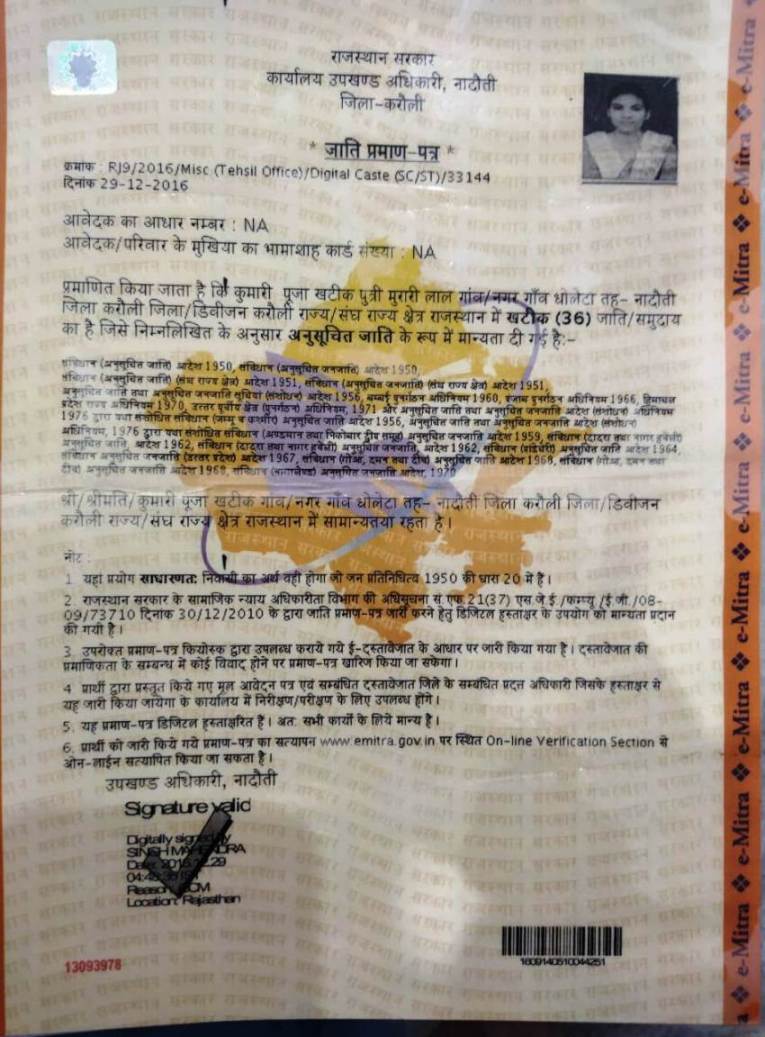 राजस्थान सरकार
कार्यालय उपखण्ड अधिकारी, नादौती
जिला-करौली
* जाति प्रमाण-पत्र *
क्रमांक : RJ9/2016/Misc (Tehsil Office)/Digital Caste (SC/ST)/33144
दिनांक 29-12-2016
आवेदक का आधार नम्बर : NA
आवेदक/परिवार के मुखिया का भामाशाह कार्ड संख्या : NA
प्रमाणित किया जाता है कि कुमारी पूजा खटीक पुत्री मुरारी लाल गांव/नगर गाँव धोलेटा तह- नादौती
जिला करौली जिला/डिवीजन करौली राज्य/संघ राज्य क्षेत्र राजस्थान में खटीक (36) जाति/समुदाय
का है जिसे निम्नलिखित के अनुसार अनुसूचित जाति के रूप में मान्यता दी गई है:-
संविधान (अनुसूचित जाति) आदेश 1950, संविधान (अनुसूचित जनजाति) आदेश 1950,
संविधान (अनुसूचित जाति) (संघ राज्य क्षेत्र) आदेश 1951, संविधान (अनुसूचित जनजाति) (संघ राज्य क्षेत्र) आदेश 1951,
अनुसूचित जाति तथा अनुसूचित जनजाति सूचियां (संशोधन) आदेश 1956, बम्बई पुनर्गठन अधिनियम 1960, पंजाब पुनर्गठन अधिनियम 1966, हिमाचल
प्रदेश राज्य अधिनियम 1970, उत्तर पूर्वीय क्षेत्र (पुनर्गठन) अधिनियम, 1971 और अनुसूचित जाति तथा अनुसूचित जनजाति आदेश (संशोधन) अधिनियम
1976 द्वारा यथा संशोधित संविधान (जम्मू व कश्मीर) अनुसूचित जाति आदेश 1956, अनुसूचित जाति तथा अनुसूचित जनजाति आदेश (संशोधन)
अधिनियम, 1976 द्वारा यथा संशोधित संविधान (अण्डमान तथा निकोबार द्वीप समूह) अनुसूचित जनजाति आदेश 1959, संविधान (दादरा तथा नागर हवेली)
अनुसूचित जाति, आदेश 1962, संविधान (दादरा तथा नागर हवेली) अनुसूचित जनजाति, आदेश 1962, संविधान (पांडिचेरी) अनुसूचित जाति आदेश 1964,
संविधान अनुसूचित जनजाति (उत्तर प्रदेश) आदेश 1967, संविधान (गोआ, दमन तथा दीव) अनुसूचित जाति आदेश 1968, संविधान (गोआ, दमन तथा
दीव) अनुसूचित जनजाति आदेश 1968, संविधान (नागालैण्ड) अनुसूचित जनजाति आदेश, 1970
श्री/श्रीमति/कुमारी पूजा खटीक गांव/नगर गाँव धोलेटा तह- नादौती जिला करौली जिला/डिवीजन
करौली राज्य/संघ राज्य क्षेत्र राजस्थान में सामान्यतया रहता है।
नोट :
1 यहां प्रयोग साधारणत: निवासी का अर्थ वही होगा जो जन प्रतिनिधित्व 1950 की धारा 20 में है।
2 राजस्थान सरकार के सामाजिक न्याय अधिकारीता विभाग की अधिसूचना सं एफ.21(37) एस.जे.ई./कम्प्यू./ई.जी./08-
09/73710 दिनांक 30/12/2010 के द्वारा जाति प्रमाण-पत्र जारी करने हेतु डिजिटल हस्ताक्षर के उपयोग को मान्यता प्रदान
की गयी है।
3. उपरोक्त प्रमाण-पत्र कियोस्क द्वारा उपलब्ध कराये गये ई-दस्तावेजात के आधार पर जारी किया गया है। दस्तावेजात की
प्रमाणिकता के सम्बन्ध में कोई विवाद होने पर प्रमाण-पत्र खारिज किया जा सकेगा।
4 प्रार्थी द्वारा प्रस्तुत किये गए मूल आवेदन पत्र एवं सम्बंधित दस्तावेजात जिले के सम्बंधित प्रदत्त अधिकारी जिसके हस्ताक्षर से
यह जारी किया जायेगा के कार्यालय में निरीक्षण/परीक्षण के लिए उपलब्ध होंगे।
5. यह प्रमाण-पत्र डिजिटल हस्ताक्षरित है। अत: सभी कार्यो के लिये मान्य है।
6. प्रार्थी को जारी किये गये प्रमाण-पत्र का सत्यापन www.emitra.gov.in पर स्थित On-line Verification Section से
ओन-लाईन सत्यापित किया जा सकता है।
उपखण्ड अधिकारी, नादौती
Signature valid
Digitally signed by
SINGH MAHENDRA
Date: 2016.12.29
Reason: SDM
Location: Rajasthan
13093978
1609140510044251
e-Mitra ❖ e-Mitra ❖ e-Mitra ❖ e-Mitra ❖ e-Mitra ❖ e-Mitra ❖ e-Mitra